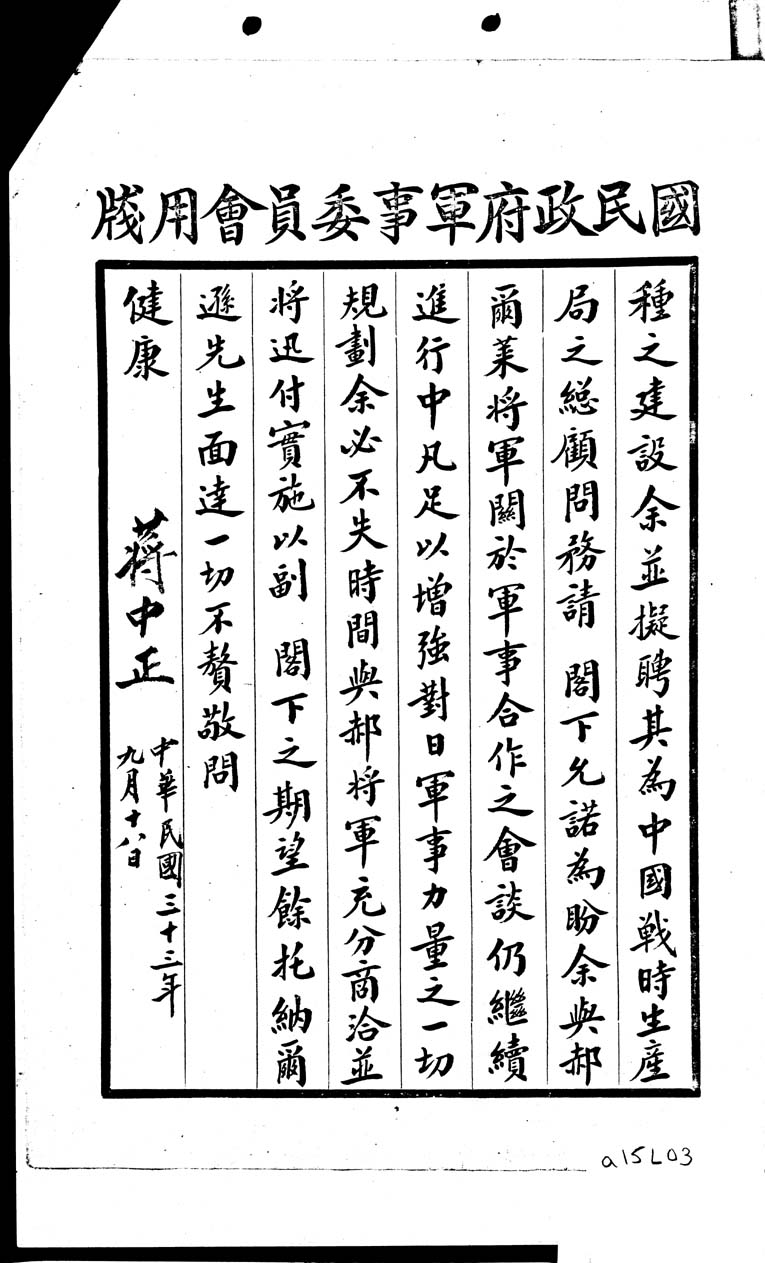 國民政府軍事委員會用牋
種之建設余並擬聘其為中國戰時生產
局之總顧問務請 閣下允諾為盼余與郝
爾萊將軍關於軍事合作之會談仍繼續
進行中凡足以增強對日軍事力量之一切
規劃余必不失時間與郝將軍充分商洽並
將迅付實施以副 閣下之期望餘托納爾
遜先生面達一切不贅敬問
健康
蔣中正
中華民國三十三年
九月十八日
a15L03